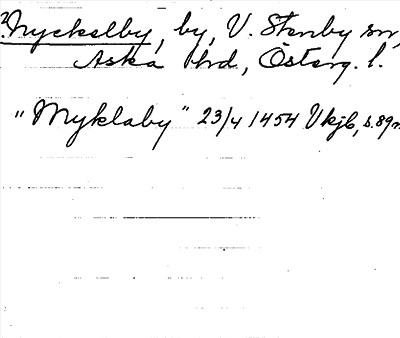 Nyckelby, by, V. Stenby sn,
Aska hrd, Österg. l.
"Myklaby" 23/4 1454 Vkjb, s. 89